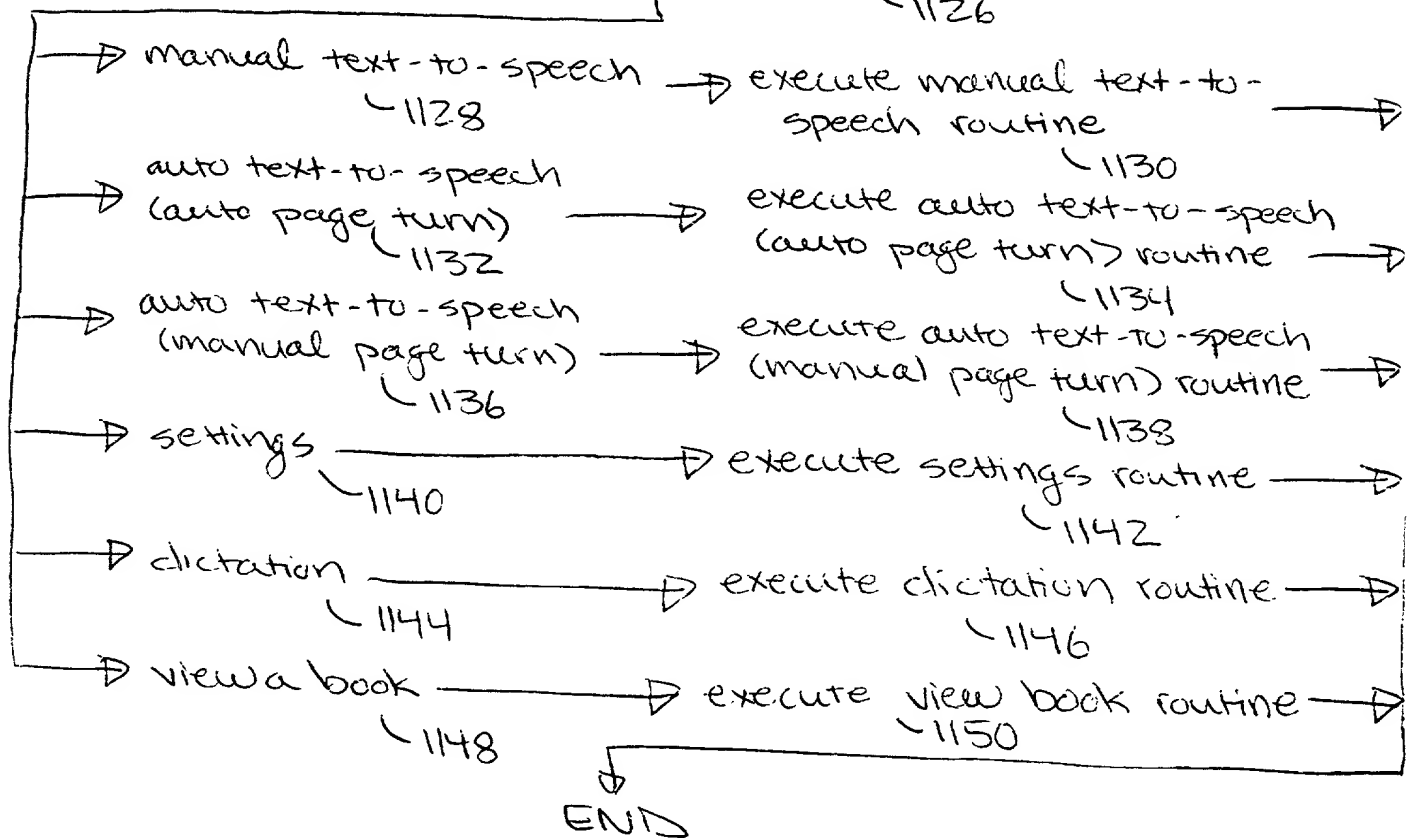 1126
manual text-to-speech
1128
execute manual text-to-
speech routine
1130
auto text-to-speech
(auto page turn)
1132
execute auto text-to-speech
(auto page turn) routine
1134
auto text-to-speech
(manual page turn)
1136
execute auto text-to-speech
(manual page turn) routine
1138
settings
1140
execute settings routine
1142
dictation
1144
execute dictation routine
1146
view a book
1148
execute view book routine
1150
END